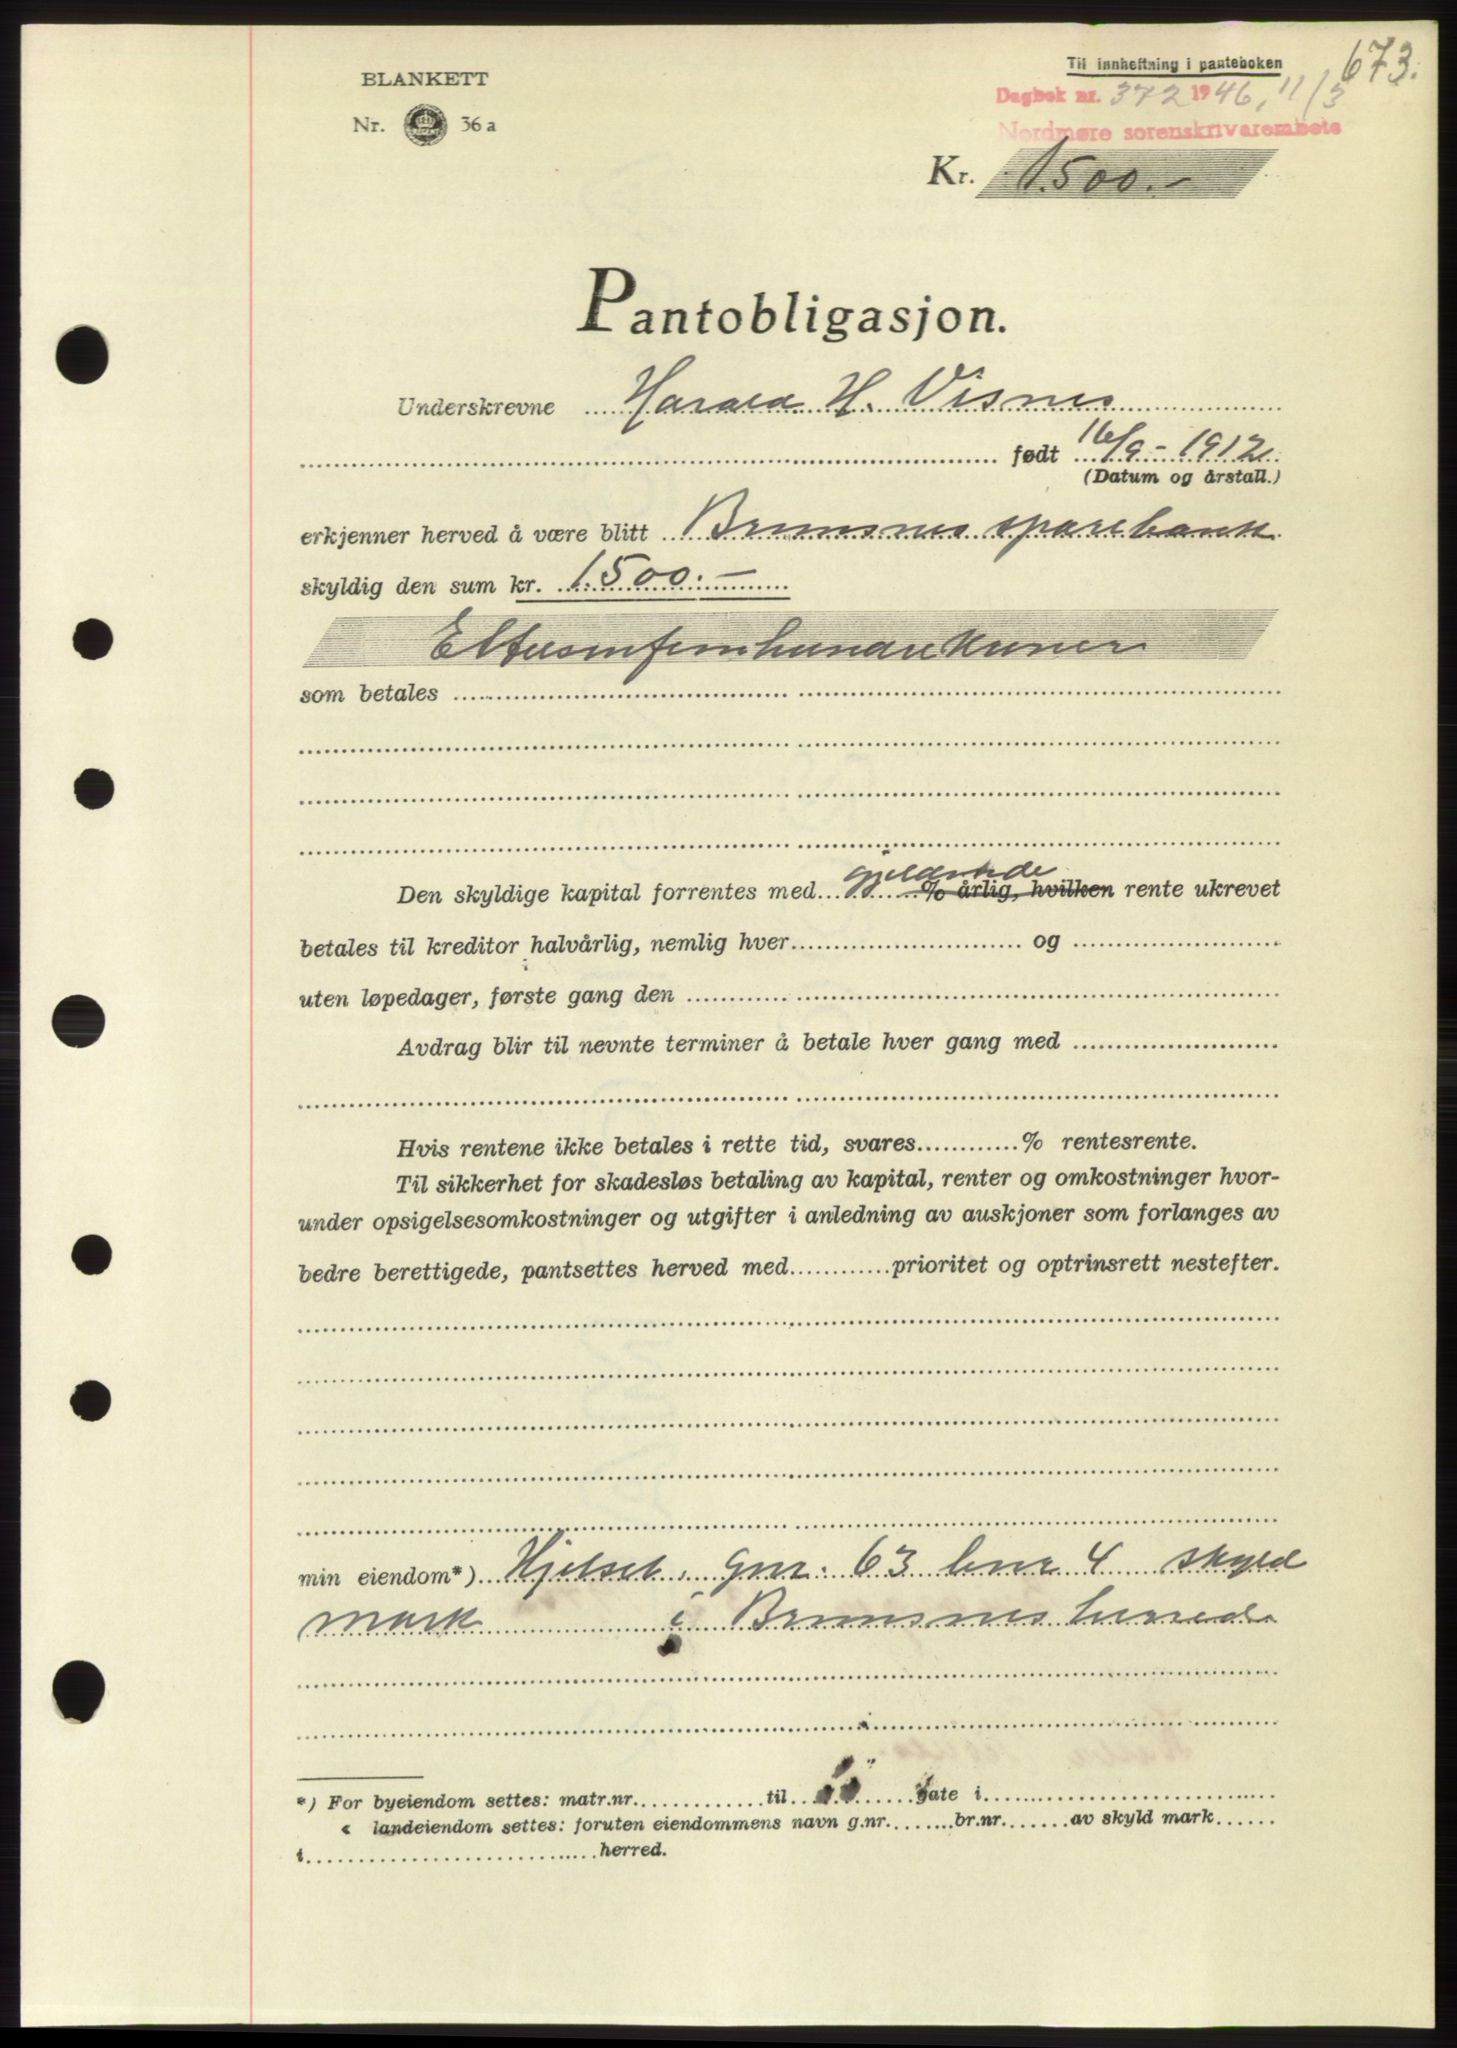 673.
Til innheftning i panteboken
BLANKETT
Dagbok nr. 372 1946, 11/3
Nr. 36 a
Nordmøre sorenskrivarembete
Kr. 1500.-
Pantobligasjon.
Underskrevne Harald H. Visnes
født 16/9 - 1912
(Datum og årstall.)
erkjenner herved å være blitt Bremsnes sparebank
skyldig den sum kr. 1500.-
Ettusenfemhundre kroner
som betales
gjeldende
Den skyldige kapital forrentes med % årlig, hvilken rente ukrevet
betales til kreditor halvårlig, nemlig hver og
uten løpedager, første gang den
Avdrag blir til nevnte terminer å betale hver gang med
Hvis rentene ikke betales i rette tid, svares % rentesrente.
Til sikkerhet for skadesløs betaling av kapital, renter og omkostninger hvor-
under opsigelsesomkostninger og utgifter i anledning av auskjoner som forlanges av
bedre berettigede, pantsettes herved med prioritet og optrinsrett nestefter.
min eiendom*) Hjelset, gnr. 63 bnr 4 skyld
mark i Bremsnes herred
*) For byeiendom settes: matr.nr. til gate i
« landeiendom settes: foruten eiendommens navn g.nr. br.nr. av skyld mark
i herred.